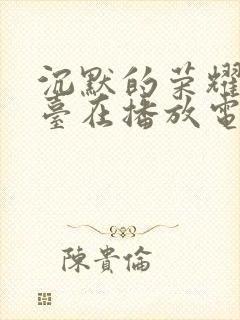 沉默的荣耀
臺在播放電
陳貴倫